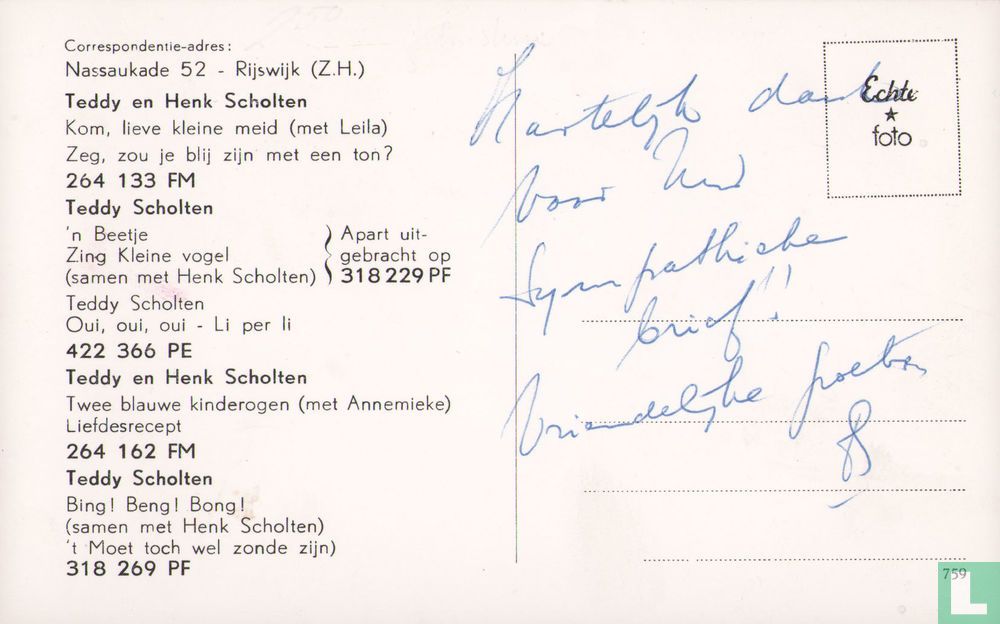 Correspondentie-adres:
Nassaukade 52 - Rijswijk (Z.H.)
Teddy en Henk Scholten
Kom, lieve kleine meid (met Leila)
Zeg, zou je blij zijn met een ton?
264 133 FM
Teddy Scholten
'n Beetje
Zing Kleine vogel
(samen met Henk Scholten)
Apart uit-
gebracht op
318 229 PF
Teddy Scholten
Oui, oui, oui - Li per li
422 366 PE
Teddy en Henk Scholten
Twee blauwe kinderogen (met Annemieke)
Liefdesrecept
264 162 FM
Teddy Scholten
Bing! Beng! Bong!
(samen met Henk Scholten)
't Moet toch wel zonde zijn)
318 269 PF
Hartelijk dank
voor Uw
sympathieke
brief!!
Vriendelijke groeten
Echte
foto
759
L